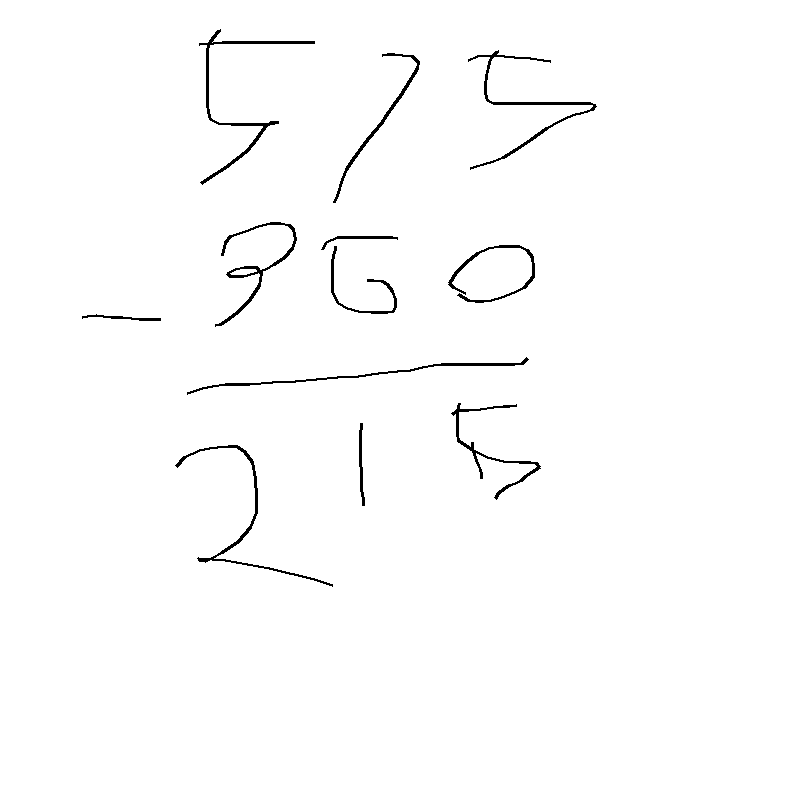 575
- 360
215